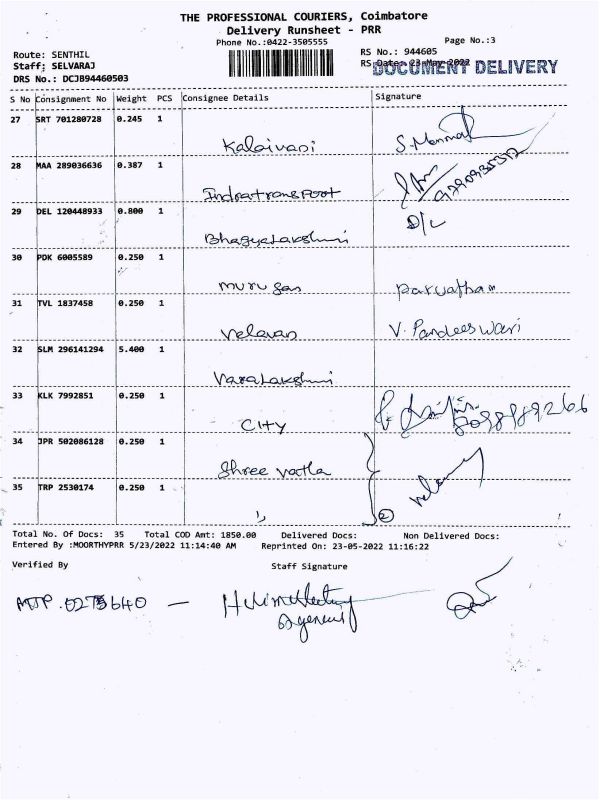 THE PROFESSIONAL COURIERS, Coimbatore
Delivery Runsheet - PRR
Phone No.:0422-3505555
Page No.:3
Route: SENTHIL
RS No.: 944605
Staff: SELVARAJ
RS Date: 23-May-2022
DOCUMENT DELIVERY
DRS No.: DCJB94460503
S No Consignment No Weight PCS Consignee Details Signature
27 SRT 701280728 0.245 1
Kalaivani S.
28 MAA 289036636 0.387 1
Indratransport
29 DEL 120448933 0.800 1
D/L
Bhagyalakshmi
30 PDK 6005589 0.250 1
murugan Parvatham
31 TVL 1837458 0.250 1
velavan V. Pandeeswari
32 SLM 296141294 5.400 1
Varalakshmi
33 KLK 7992851 0.250 1
CITY
34 JPR 502086128 0.250 1
Shree
35 TRP 2530174 0.250 1
2
Total No. Of Docs: 35 Total COD Amt: 1850.00 Delivered Docs: Non Delivered Docs:
Entered By :MOORTHYPRR 5/23/2022 11:14:40 AM Reprinted On: 23-05-2022 11:16:22
Verified By Staff Signature